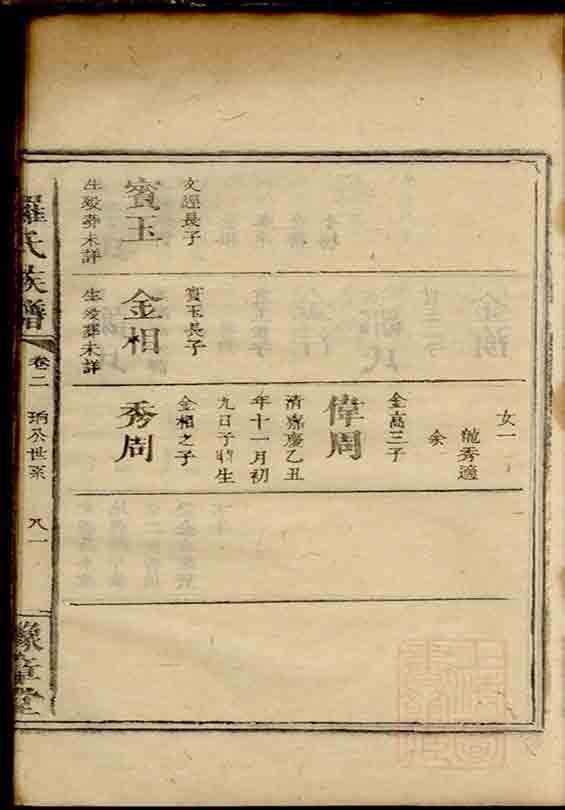 文經長子
賓玉
生歿葬未詳
賓玉長子
金相
生歿葬未詳
女一
毓秀適
余
金高三子
偉周
清嘉慶乙丑
年十一月初
九日子時生
金相之子
秀周
羅氏族譜
卷二
公世系
八一
豫章堂